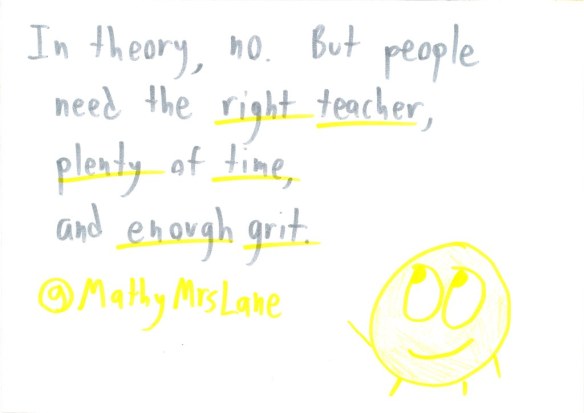 In theory, no. But people
need the right teacher,
plenty of time,
and enough grit.
@MathyMrsLane